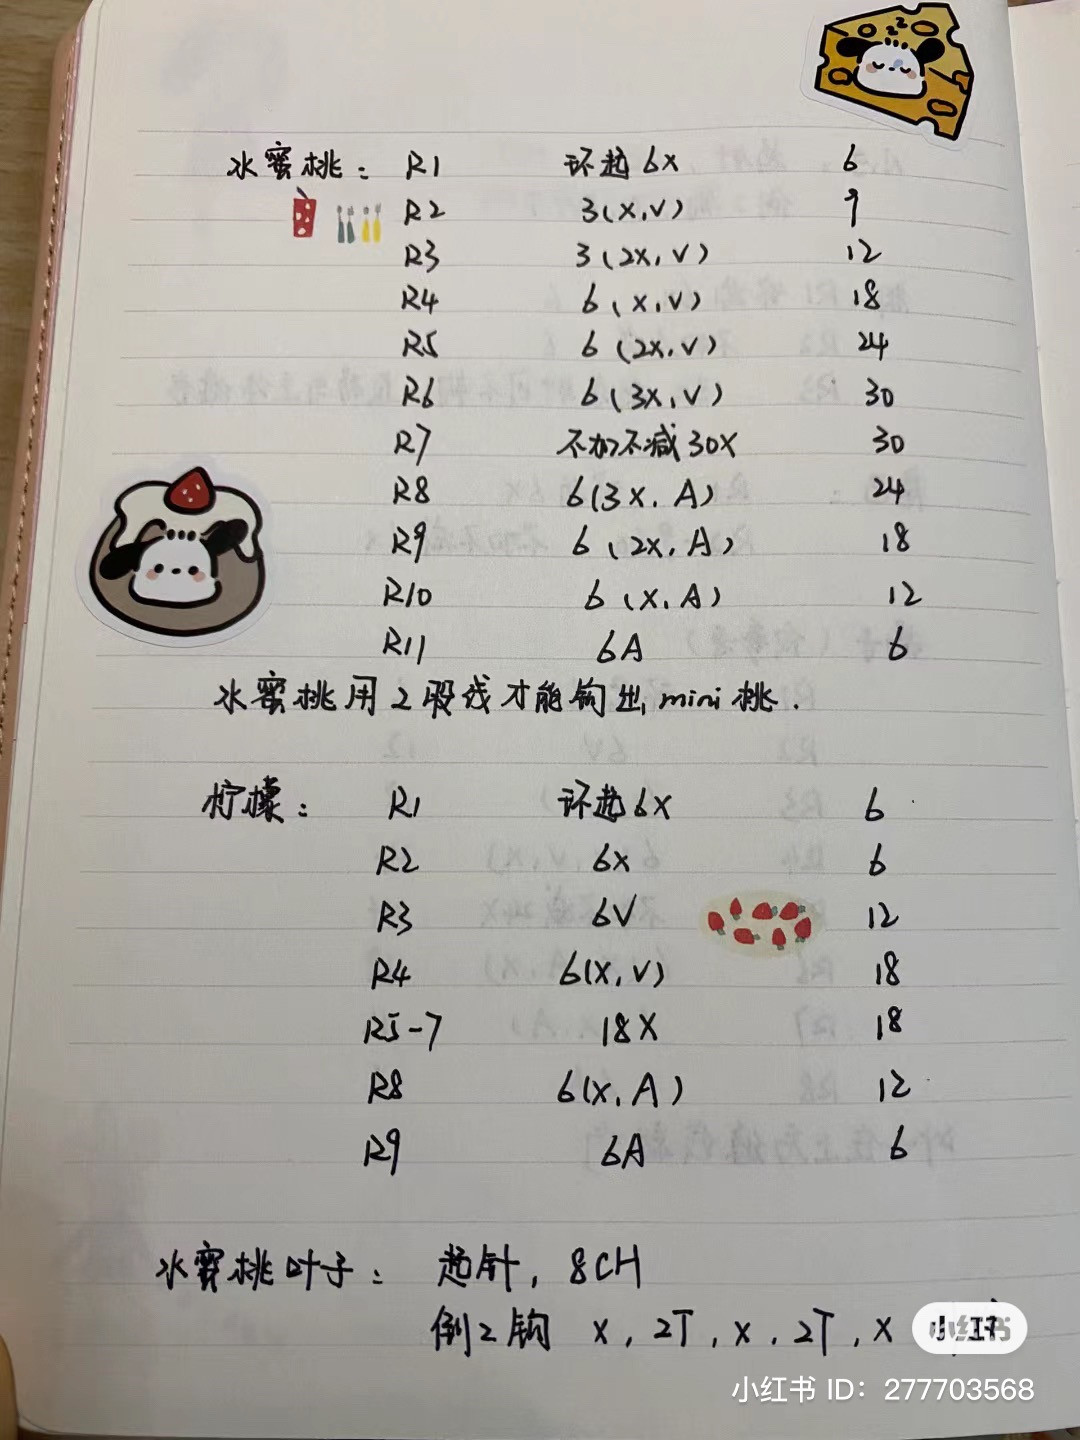 水蜜桃： R1 环起6X 6
R2 3(X,V) 9
R3 3(2X,V) 12
R4 6(X,V) 18
R5 6(2X,V) 24
R6 6(3X,V) 30
R7 不加不减30X 30
R8 6(3X,A) 24
R9 6(2X,A) 18
R10 6(X,A) 12
R11 6A 6
水蜜桃用2股线才能钩出mini桃.
柠檬： R1 环起6X 6
R2 6X 6
R3 6V 12
R4 6(X,V) 18
R5-7 18X 18
R8 6(X,A) 12
R9 6A 6
水蜜桃叶子： 起针, 8CH
倒2钩 X, 2T, X, 2T, X
小红书
小红书 ID：277703568